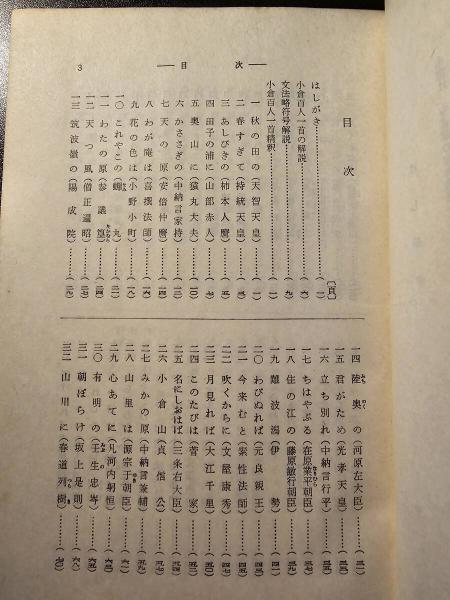 3
― 目次 ―
目次
〔頁〕
はしがき……(一)
小倉百人一首の解説……(一)
文法略符号解説……(九)
小倉百人一首精釈
一 秋の田の(天智天皇)……(一)
二 春すぎて(持統天皇)……(三)
三 あしびきの(柿本人麿)……(五)
四 田子の浦に(山部赤人)……(七)
五 奥山に(猿丸大夫)……(一〇)
六 かささぎの(中納言家持)……(一二)
七 天の原(安倍仲麿)
八 わが庵は(喜撰法師)……(一六)
九 花の色は(小野小町)……(一八)
一〇 これやこの(蝉丸)
一一 わたの原(参議篁)
一二 天つ風(僧正遍昭)
一三 筑波嶺の(陽成院)
一四 陸奥の(河原左大臣)……(三一)
一五 君がため(光孝天皇)
一六 立ち別れ(中納言行平)
一七 ちはやぶる(在原業平朝臣)
一八 住の江の(藤原敏行朝臣)
一九 難波潟(伊勢)……(四一)
二〇 わびぬれば(元良親王)
二一 今来むと(素性法師)
二二 吹くからに(文屋康秀)
二三 月見れば(大江千里)
二四 このたびは(菅家)
二五 名にしおはば(三条右大臣)
二六 小倉山(貞信公)
二七 みかの原(中納言兼輔)
二八 山里は(源宗于朝臣)……(六一)
二九 心あてに(凡河内躬恒)
三〇 有明の(壬生忠岑)
三一 朝ぼらけ(坂上是則)……(六八)
三二 山川に(春道列樹)……(七〇)